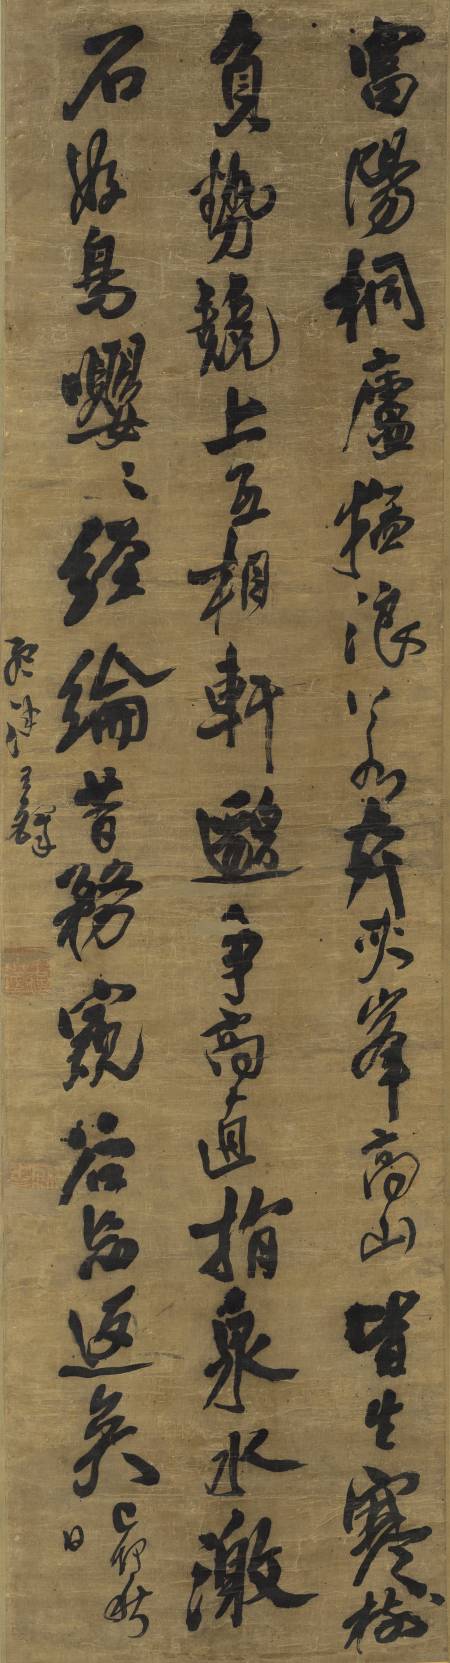 富陽桐廬猛浪若奔夾峯高山皆生寒樹
負勢競上互相軒邈爭高直指泉水激
石好鳥嚶々經綸昔務窺谷忘返矣己卯秋
日
孟津王鐸